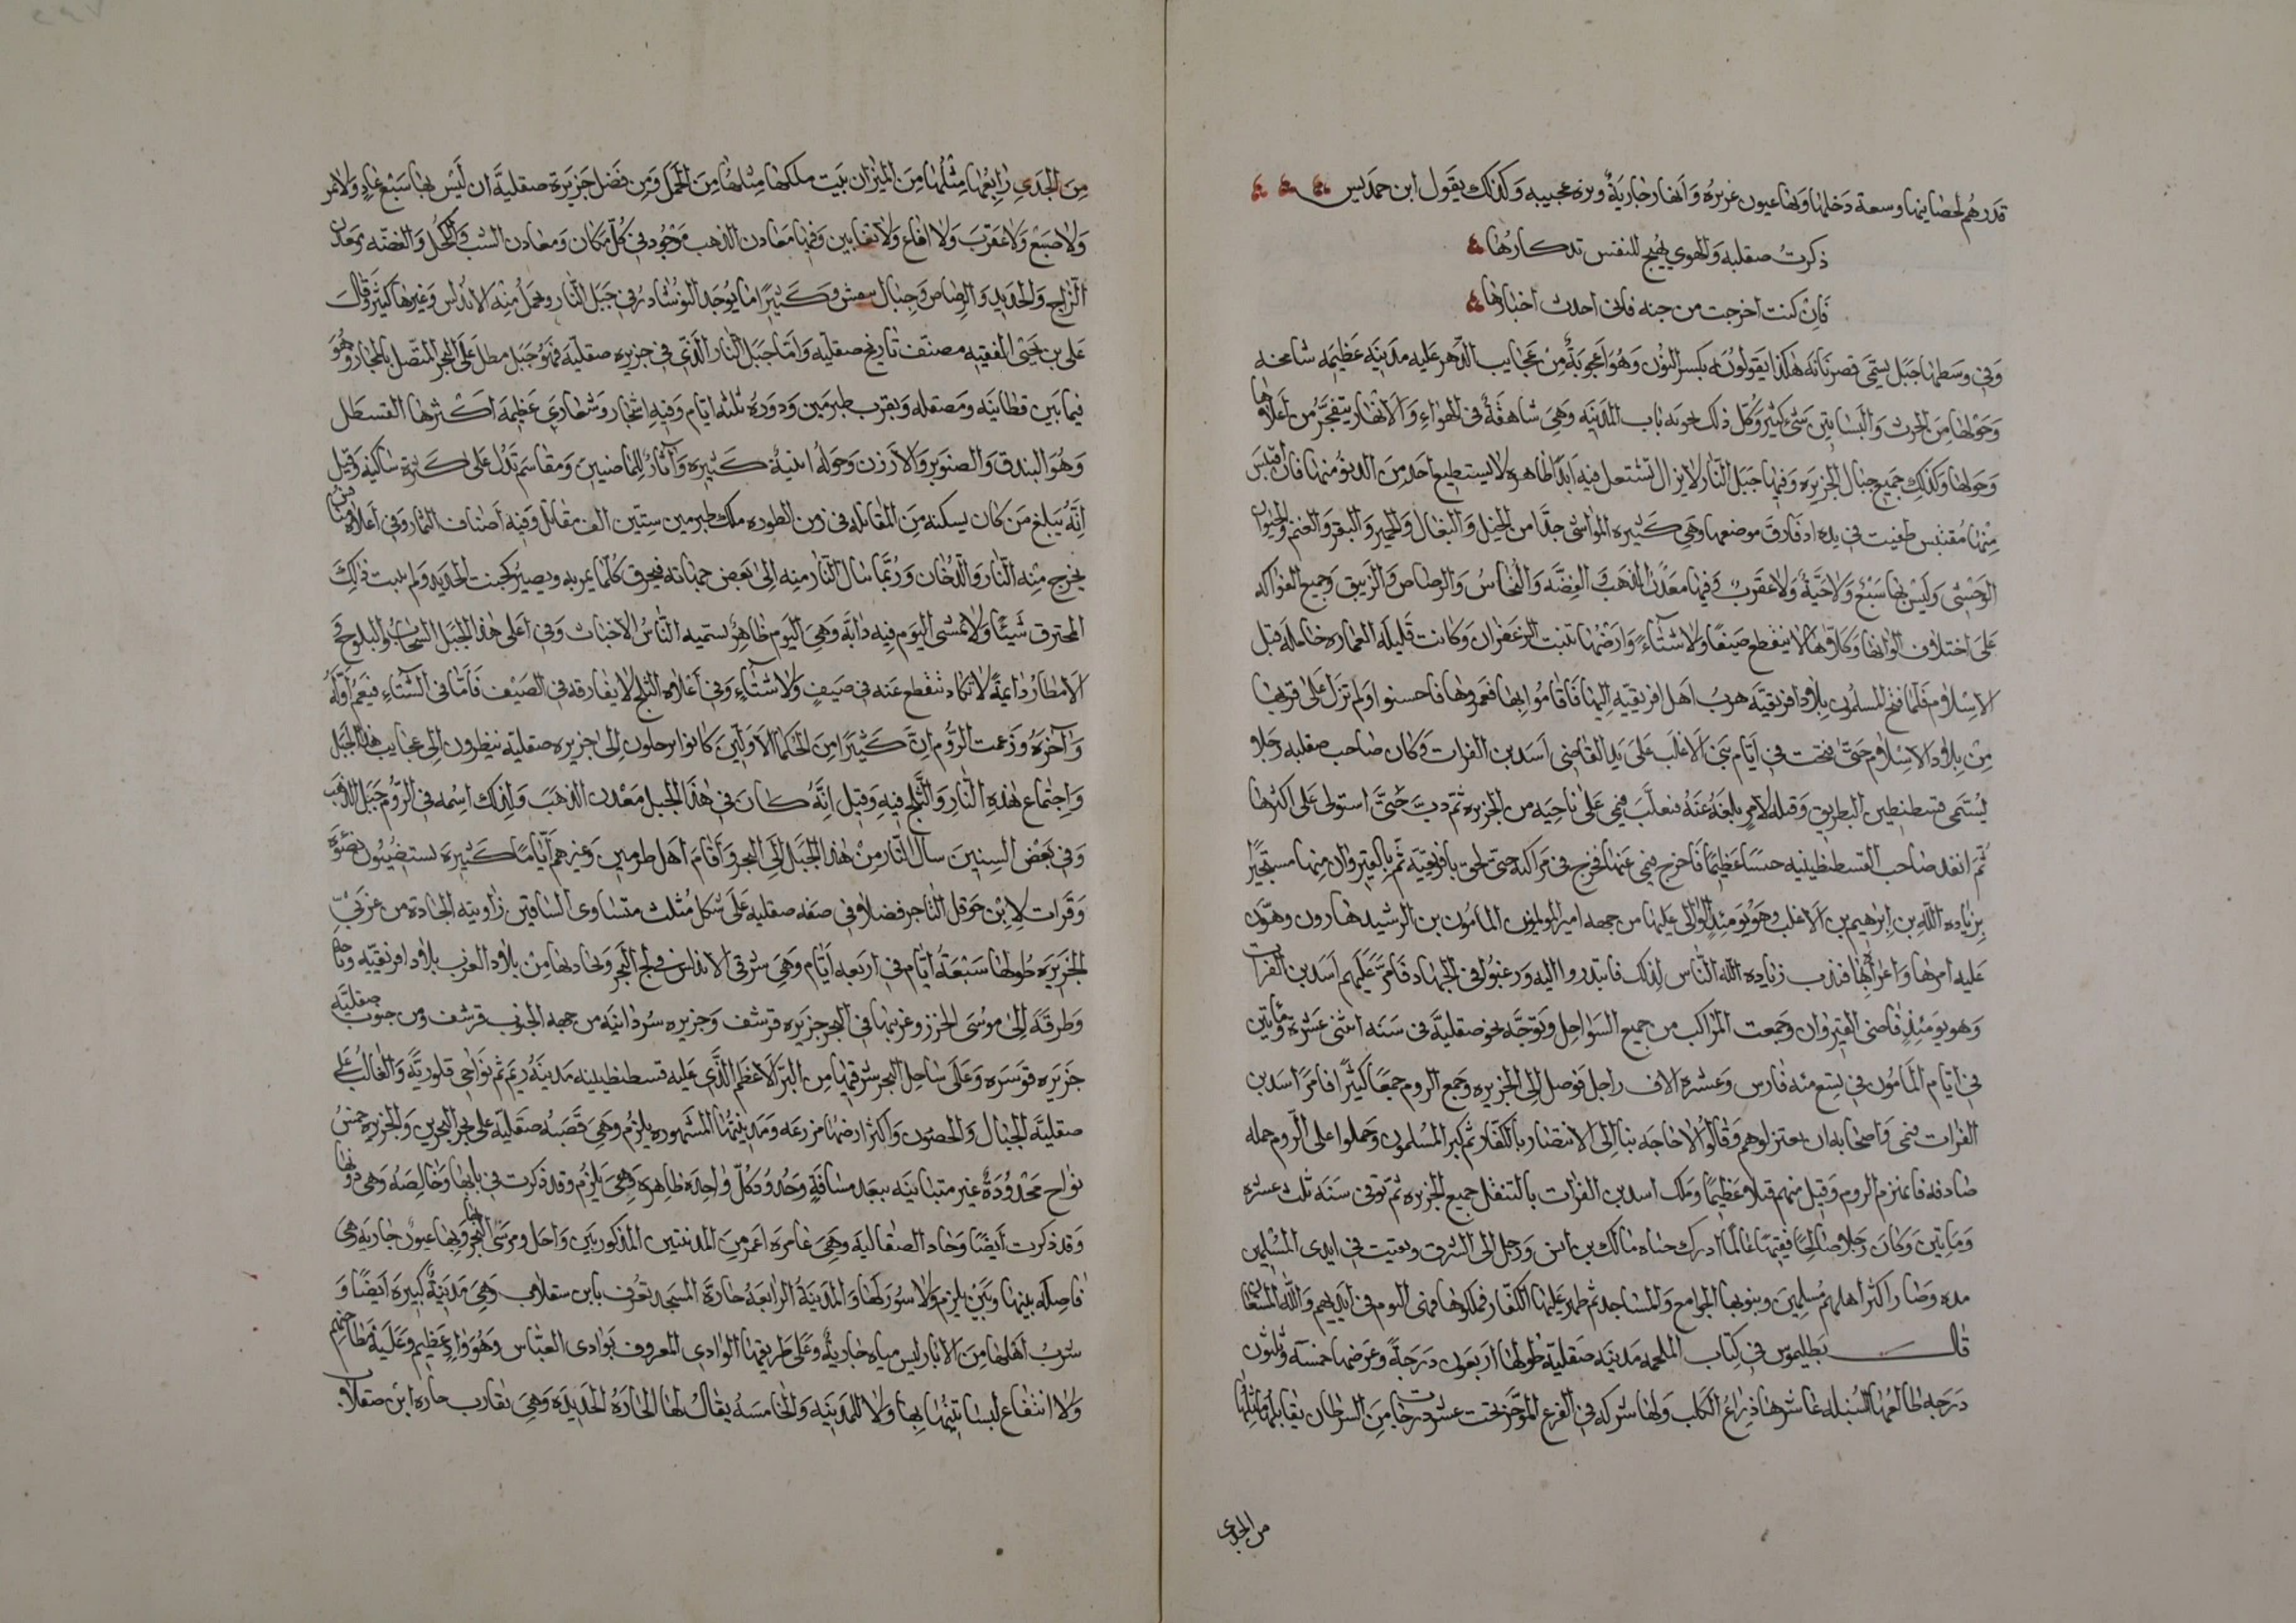 قدرهم لحصانيتها وسعة دخلها وبها عيون غزيره وأنهار جارية ونزه عجيبه وكذلك يقول ابن حمديس
ذكرت صقليه والهوي يهيج للنفس تدكارها
فإن كنت اخرجت من جنه فاني احدث اخبارها
وفي وسطها جبل يسمى قصريانه هكذا يقولونه بكسر النون وهو أعجوبة من عجايب الدهر عليه مدينه عظيمه شامخه
وحولها من الحرث والبساتين شئ كثير وكل ذلك يحويه باب المدينه وهي شاهقة في الهواء والانهار يتفجر من أعلاها
وحولها وكذلك جميع جبال الجزيره وفيها جبل النار لا يزال تشتعل فيه أبدا ظاهره لا يستطيع أحد من الدنو منها فان اقتبس
منها مقتبس طفيت في يده اذ فارق موضعها وهي كثيره المواشي جدا من الخيل والبغال والحمير والبقر والغنم والحيوان
الوحشي وليس بها سبع ولا حية ولا عقرب وفيها معدن الذهب والفضه والنحاس والرصاص والزيبق وجميع الفواكه
على اختلاف الوانها وكلاها لا ينقطع صيفا ولا شتاء وأرضها تنبت الزعفران وكانت قليله العماره خامله قبل
الاسلام فلما فتح المسلمون بلاد افريقيه هرب أهل افريقيه اليها فأقاموا بها فعمروها فاحسنوا ولم تزل على قربها
من بلاد الاسلام حتى فتحت في أيام بني الاغلب على يد القاضي أسد بن الفرات وكان صاحب صقليه رجلا
يسمى قسطنطين البطريق وقتله لامر بلغه عنه فتغلب فيمي على ناحيه من الجزيره ثم دبت حتى استولى على اكثرها
ثم انفد صاحب القسطنطينيه جيشا عظيما فاخرج فيمي عنها فخرج في مراكبه حتى لحق بافريقيه ثم بالقيروان منها مستجيرا
بزياده الله بن ابرهيم بن الاغلب وهو يومئذ الوالى عليها من جهه امير المومنين المامون بن الرشيد هارون وهون
عليه امرها واغراه بها فندب زياده الله الناس لذلك فابتدروا اليه ورغبوا في الجهاد فامر عليهم أسد بن الفرات
وهو يومئذ قاضي القيروان وجمعت المراكب من جميع السواحل وتوجه نحو صقلية في سنه اثنى عشره ومأيتين
في ايام المامون في تسع مئه فارس وعشره الاف راجل فوصل إلى الجزيره وجمع الروم جمعا كثيرا فامر اسد بن
الفرات فيمي واصحابه ان يعتزلوهم وقالوا لا حاجه بنا إلى الانتصار بالكفار ثم كبر المسلمون وحملوا على الروم حمله
صادقه فانهزم الروم وقتل منهم قتلا عظيما وملك اسد بن الفرات بالتنقل جميع الجزيره ثم توفى سنه ثلث عشره
ومايتين وكان رجلا صالحا فقيها عالما ادرك حياه مالك بن انس ورحل الى الشرق وبقيت في ايدى المسلمين
مده وصار اكثر اهلها مسلمين وبنوبها الجوامع والمساجد ثم ظهر عليها الكفار فملكوها فهي اليوم في ايديهم والله المستعان
قال بطليموس في كتاب الملحمه مدينه صقلية طولها اربعون درجة وعرضها خمسه وثلثون
درجه طالعها السنبله عاشرها ذراع الكلب ولها شركه في الفرع المؤخر تحت عشر درجات من السرطان يقابلها مثلها
من الجدى
من الجدي رابعها مثلها من الميزان بيت ملكها مثلها من الحمل ومن فضل جزيرة صقلية ان ليس بها سبع عاد ولا نمر
ولا ضبع ولا عقرب ولا افاع ولا ثعابين وفيها معادن الذهب موجود في كل مكان ومعادن الشب والكحل والفضه ومعدن
الزاج والحديد والرصاص وجبال وكثيرا ما يوجد النوشادر في جبل النار ويحمل منه الى الاندلس وغيرها كثير قال
على بن يحيى الفقيه مصنف تاريخ صقليه وامّا جبل النار الذي في جزيره صقليه فهو جبل مطل على البحر المتصل بالمجاز وهو
فيما بين قطانيه ومصقله وبقرب طبرمين ودوره ثلثه ايام وفيه اشجار وشعاري عظيمه اكثرها القسطل
وهو البندق والصنوبر والارزن وحوله ابنية كثيره وآثار للماضيين ومقاسم تدل على كثرة ساكنيه وقيل
إنه يبلغ من كان يسكنه من المقاتله في زمن الطوره ملك طبرمين ستين الف مقاتل وفيه أصناف الثمار وفي أعلاه
يخرج منه النار والدخان وربما سال النار منه إلى بعض جهاته فيحرق كلما يمر به ويصير كخبث الحديد ولم ينبت ذلك
المحترق شيئا ولا تمشي اليوم فيه دابة وهي اليوم ظاهر تسميه الناس الاخباث وفي أعلى هذا الجبل السحاب والثلوج و
الامطار دايمة لا تكاد تنقطع عنه في صيف ولا شتاء وفي أعلاه الثلج لا يفارقه في الصيف فأما في الشتاء فيعم أوله
وآخره وزعمت الروم ان كثيرا من الحكما الاولين كانوا يرحلون إلى جزيره صقلية ينظرون إلى عجايب هذا الجبل
واجتماع هذه النار والثلج فيه وقيل انه كان في هذا الجبل معدن الذهب ولذلك اسمه في الروم جبل الذهب
وفي بعض السنين سال النار من هذا الجبل إلى البحر وأقام أهل طرمين وغيرهم أياما كثيرة يستضيئون بضوه
وقرات لابن حوقل التاجر فضلا في صفه صقليه على شكل مثلث متساوى الساقين زاويته الحادة من غربي
الجزيره طولها سبعة أيام في اربعه أيام وهي شرقي الاندلس في لج البحر وتحاديها من بلاد الغرب بلاد افريقيه وباجه
وطرقه إلى موسى الخزز وغربيها في البحر جزيره قرشف وجزيره سردانيه من جهه الجنوب قرشف ومن جنوب صقليه
جزيره قوسره وعلى ساحل البحر شرقيها من البر الاعظم الذي عليه قسطنطينيه مدينة ريم ثم نواحي قلورية والغالب على
صقلية الجبال والحصون واكثر ارضها مزرعه ومدينتها المشهوره بلرم وهي قصبه صقلية على بحر البحرين والجزيره خمس
نواح محدودة غير متباينه ببعد مسافة وحدود كل واحده ظاهره وهي بلرم وقد ذكرت في بابها وخالصه وهي دونها
وقد ذكرت أيضا وحاره الصقاليه وهي عامره اعمر من المدينتين المذكورتين واجل ومرسى البحر بها وبها عيون جاريه وهي
فاصله بينها وبين بلرم ولا سور لها والمدينة الرابعه حارة المسجد تعرف بابن سقلاب وهي مدينة كبيره أيضا و
شرب اهلها من الابار ليس مياه جارية وعلى طريقها الوادي المعروف بوادي العباس وهو واد عظيم وعليه مطاحنهم
ولا انتفاع لبساتينها بها ولا للمدينه والخامسه يقال لها الحاره الحديده وهي تقارب حاره ابن صقلاب